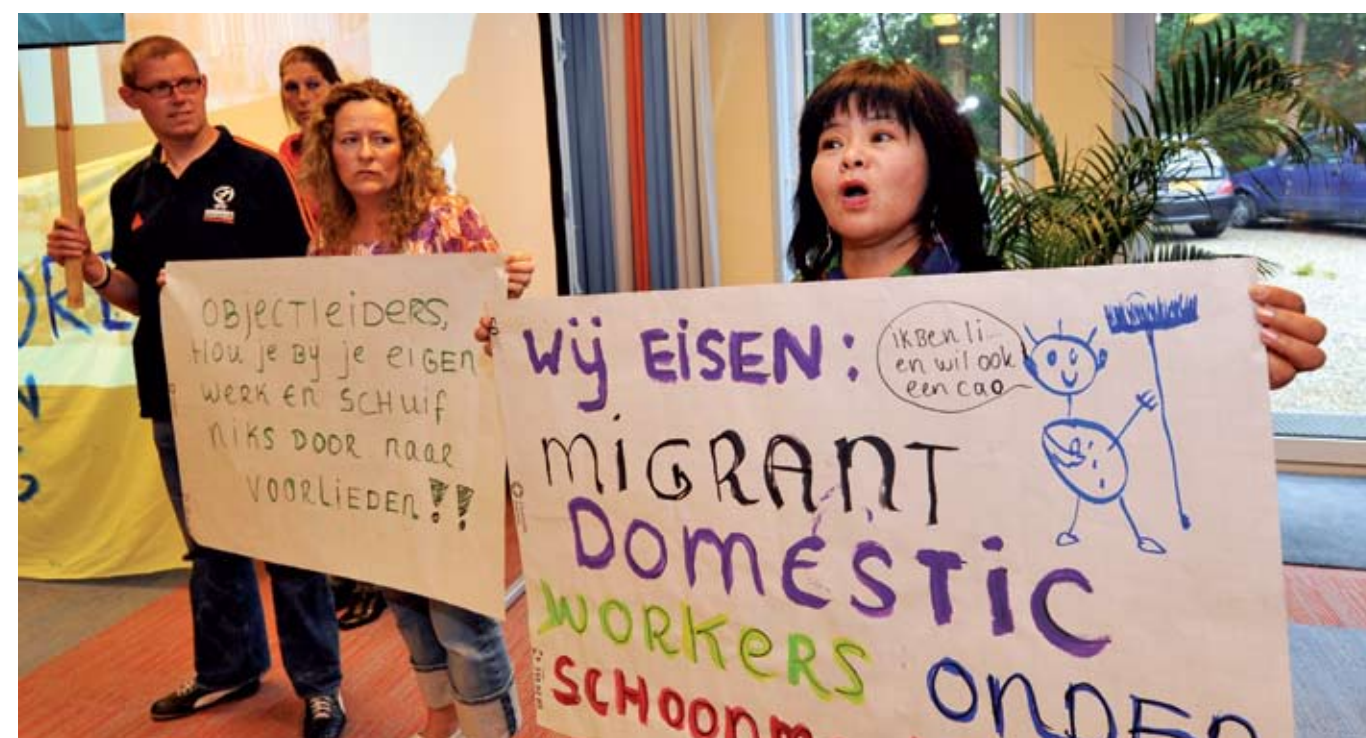 OBJECTLEIDERS,
HOU JE BY JE EIGEN
WERK EN SCHUIF
NIKS DOOR NAAR
VOORLIEDEN!!
Wij EISEN:
ik BEN li
en wil ook
een cao
MIGRANT
DOMESTIC
WORKERS ONDER